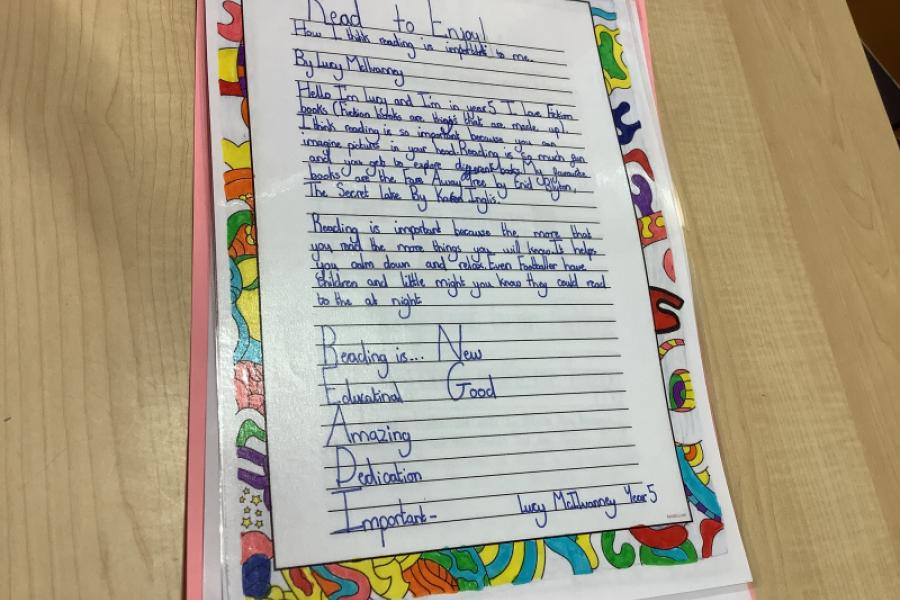 Read to Enjoy!
How I think reading is important to me.
By Lucy McIlwanney
Hello I'm Lucy and I'm in year 5 I love Fiction
books (Fiction books are things that are made up)
I think reading is so important because you can
imagine picture in your head. Reading is so much fun
and you get to explore different books. My favourite
books are the Fare Away Tree by Enid Blyton,
The Secret Lake By Karen Inglis
Reading is important because the more that
you read the more things you will know. It helps
you calm down and relax. Even Footballer have
children and little might you know they could read
to the at night
Reading is... New
Educatinal Good
Amazing
Dedication
Important-
Lucy McIlwanney Year 5